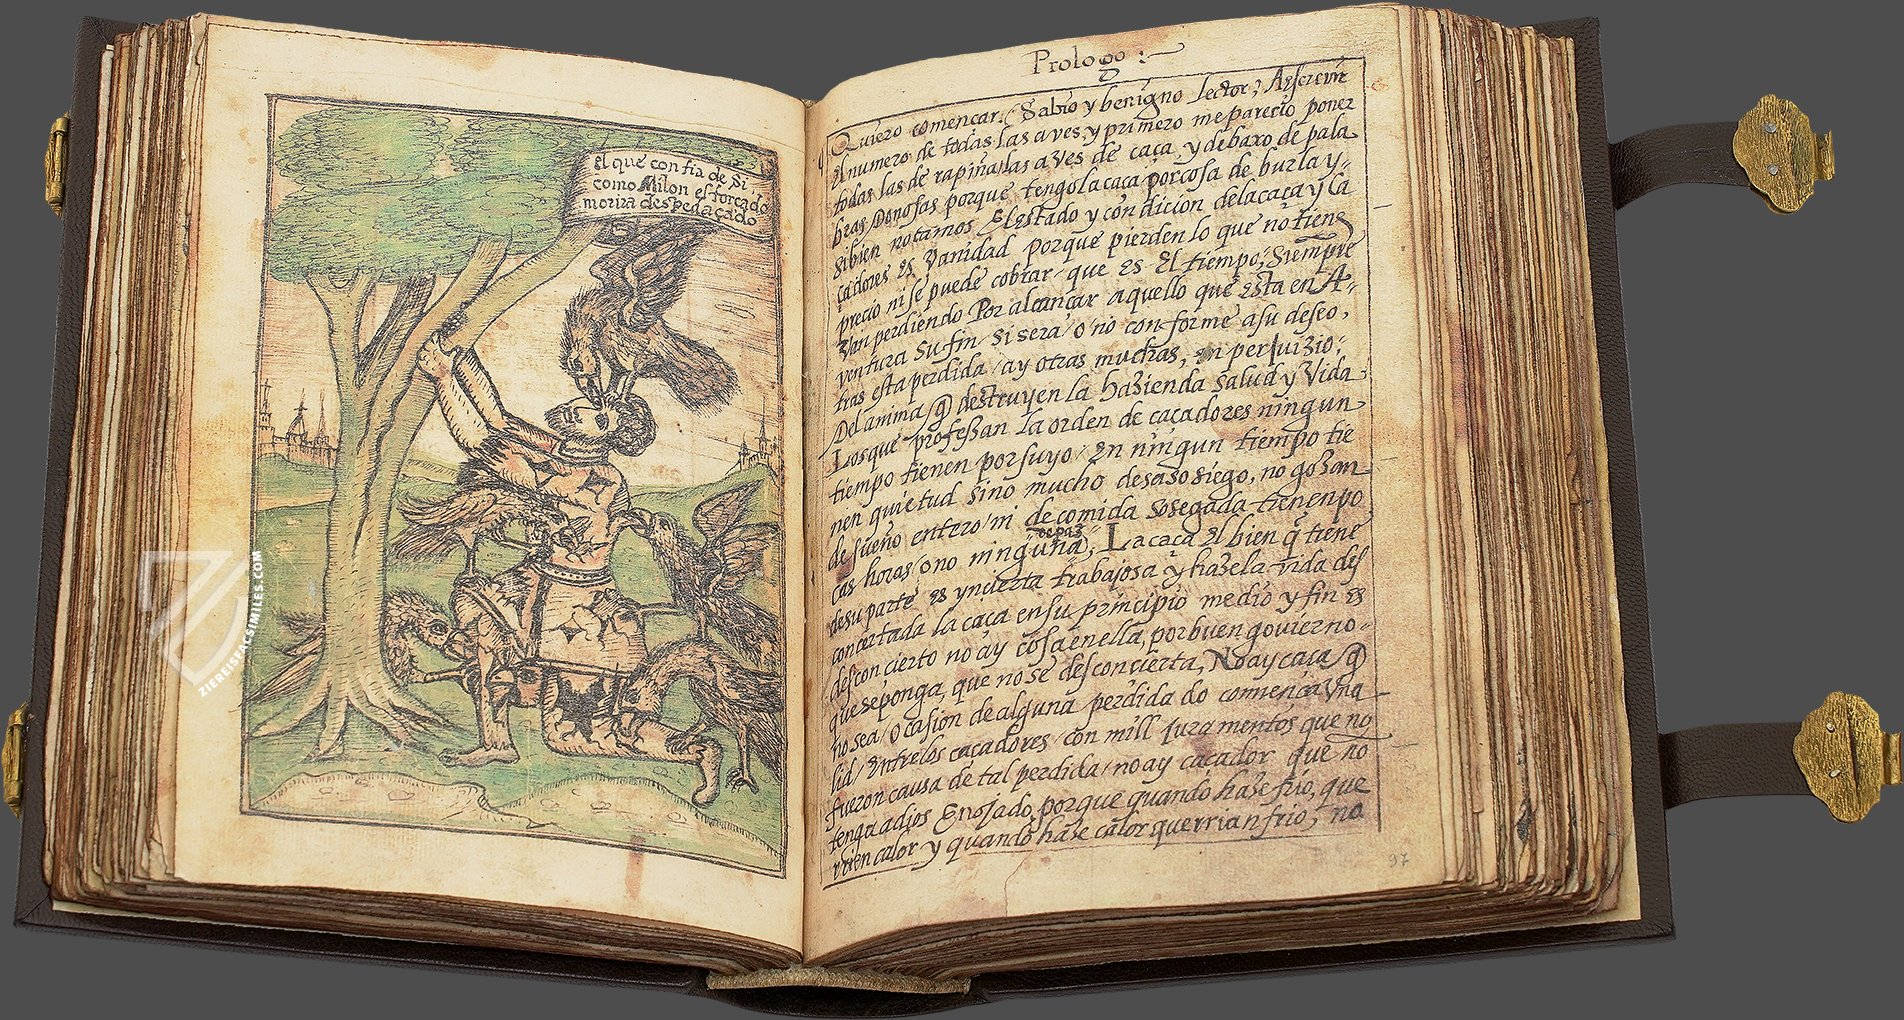 el que confia de Si
como Milon esforcado
morira despedaçado
ZIEREISFACSIMILES.COM
Prologo :~
Quiero comencar. Sabio y benigno Lector; A escrevir
el numero de todas las aves, y primero me parecio poner
todas las de rapiña, las aves de caça, y debaxo de pala
bras Donosas porque tengo la caça por cosa de burla y
si bien notamos El estado y condicion de la caça y ca
çadores es vanidad porque pierden lo que no tiene
precio ni se puede cobrar que es El tiempo; Siempre
van perdiendo Por alcançar aquello que esta en A-
ventura su fin si sera / o / no conforme a su deseo,
tras esta perdida / ay otras muchas, en perjuizio;
Del anima / q̃ destruyen la hazienda salud y Vida
Los que professan la orden de caçadores ningun
tiempo tienen por suyo / En ningun tiempo tie
nen quietud sino mucho desasosiego, no gozan
de sueño entero / ni de comida sosegada tienen po
cas horas / o no ninguna de paz; La caça El bien q̃ tiene
de su parte es ynçierta trabajosa y haze la vida des
concertada la caça en su principio medio y fin es
desconcierto no ay cosa en ella, por buen govierno-
que se ponga, que no se desconcierta, No ay caça / q̃
no sea / ocasion de alguna perdida do comença una
lid / Entre los caçadores / con mill Juramentos que no
fueron causa de tal perdida / no ay caçador que no
tenga a dios Enojado, porque quando haze frio, que
rrien calor y quando haze calor querrian frio, no
97